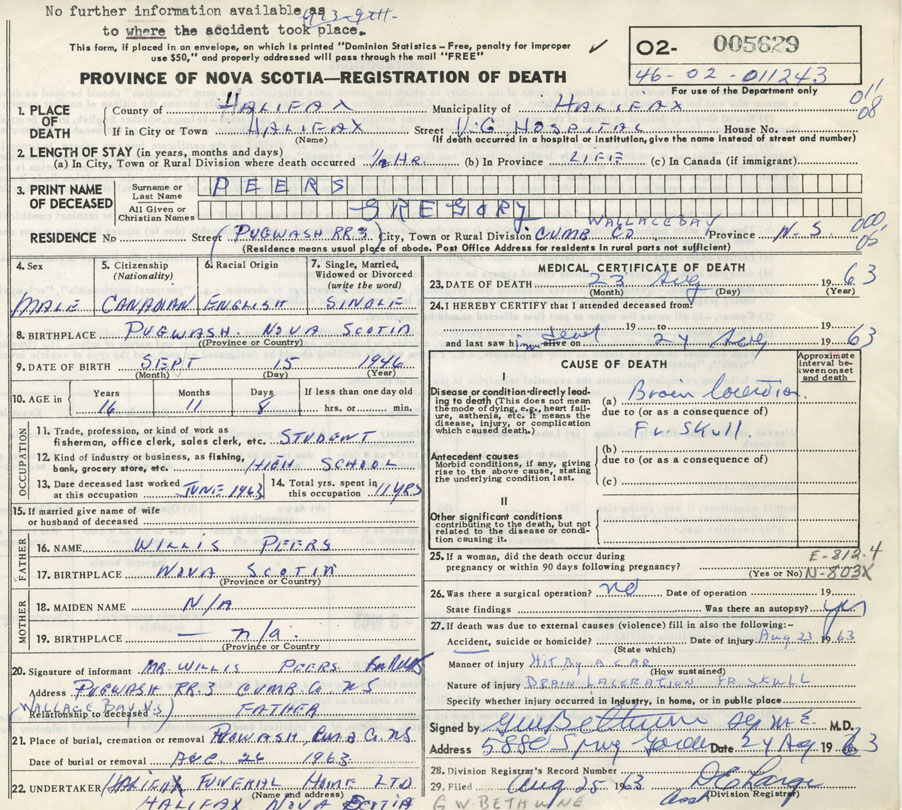 No further information available as
to where the accident took place.
This form, if placed in an envelope, on which is printed "Dominion Statistics – Free, penalty for improper
use $50," and properly addressed will pass through the mail "FREE"
✓
O2- 005629
46-02-011243
For use of the Department only
PROVINCE OF NOVA SCOTIA—REGISTRATION OF DEATH
011
08
1. PLACE OF DEATH
County of HALIFAX Municipality of HALIFAX
If in City or Town HALIFAX Street V.G HOSPITAL House No.
(Name) (If death occurred in a hospital or institution, give the name instead of street and number)
2. LENGTH OF STAY (in years, months and days)
(a) In City, Town or Rural Division where death occurred 1/2 HR. (b) In Province LIFE (c) In Canada (if immigrant)
3. PRINT NAME OF DECEASED
Surname or Last Name PEERS
All Given or Christian Names GREGORY
WALLACE BAY
RESIDENCE No Street (PUGWASH RR.3) City, Town or Rural Division CUMB CO Province N-S
000
05
(Residence means usual place of abode. Post Office Address for residents in rural parts not sufficient)
4. Sex
MALE
5. Citizenship (Nationality)
CANADIAN
6. Racial Origin
ENGLISH
7. Single, Married, Widowed or Divorced (write the word)
SINGLE
8. BIRTHPLACE PUGWASH. NOVA SCOTIA
(Province or Country)
9. DATE OF BIRTH SEPT 15 1946
(Month) (Day) (Year)
10. AGE in Years 16 Months 11 Days 8 If less than one day old hrs. or min.
OCCUPATION
11. Trade, profession, or kind of work as
fisherman, office clerk, sales clerk, etc. STUDENT
12. Kind of industry or business, as fishing,
bank, grocery store, etc. HIGH SCHOOL
13. Date deceased last worked at this occupation JUNE 1963 14. Total yrs. spent in this occupation 11 YRS
15. If married give name of wife
or husband of deceased
FATHER
16. NAME WILLIS PEERS
17. BIRTHPLACE NOVA SCOTIA
(Province or Country)
MOTHER
18. MAIDEN NAME N/A
19. BIRTHPLACE — n/a.
(Province or Country)
20. Signature of informant MR. WILLIS PEERS
Address PUGWASH RR.3 CUMB. Co NS
(WALLACE BAY N.S)
Relationship to deceased FATHER
21. Place of burial, cremation or removal PUGWASH, CUMB Co. NS.
Date of burial or removal AUG 26 1963
22. UNDERTAKER HALIFAX FUNERAL HOME LTD
(Name and address)
HALIFAX NOVA SCOTIA
MEDICAL CERTIFICATE OF DEATH
23. DATE OF DEATH 23 Aug 1963
(Month) (Day) (Year)
24. I HEREBY CERTIFY that I attended deceased from
19 to 19
and last saw him dead alive on 24 Aug 1963
CAUSE OF DEATH
Approximate interval between onset and death
I
Disease or condition directly leading to death (This does not mean the mode of dying, e.g., heart failure, asthenia, etc. It means the disease, injury, or complication which caused death.)
(a) Brain laceration
due to (or as a consequence of)
Fr. SKULL.
Antecedent causes
Morbid conditions, if any, giving rise to the above cause, stating the underlying condition last.
(b)
due to (or as a consequence of)
(c)
II
Other significant conditions
contributing to the death, but not related to the disease or condition causing it.
25. If a woman, did the death occur during
pregnancy or within 90 days following pregnancy? (Yes or No)
E-812.4
N-803X
26. Was there a surgical operation? no Date of operation 19
State findings Was there an autopsy? yes
27. If death was due to external causes (violence) fill in also the following:-
Accident, suicide or homicide? Date of injury Aug 23 1963
(State which)
Manner of injury HIT BY A CAR
(How sustained)
Nature of injury BRAIN LACERATION FR SKULL
Specify whether injury occurred in Industry, in home, or in public place
Signed by GW Bethune M.E. M.D.
Address 5880 Spring Garden Date 24 Aug 1963
28. Division Registrar's Record Number
29. Filed Aug 25 1963
(Division Registrar)
G W BETHUNE